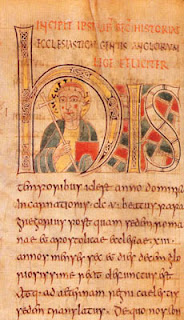 INCIPIT IPSIUS HISTORIAE
ECCLESIASTICAE GENTIS ANGLORUM
FELICITER
hIS
temporibus id est anno domini
incarnationis dc v beatus papa
gregorius postquam sedem roma
nae et apostolicae ecclesiae xiii
annos menses sex et dies decem glo
riosissime rexit defunctus est
atq; ad aeternam regni caelestis
sedem translatus. De quo nos